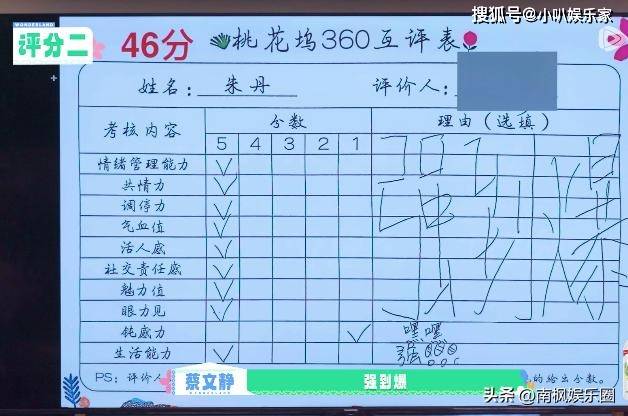 搜狐号@小叭娱乐家
WONDERLAND
评分二
46分
桃花坞360互评表
姓名: 朱丹 评价人:
考核内容 分数 理由(选填)
5 4 3 2 1
情绪管理能力 ✓
共情力 ✓
调停力 ✓
气血值 ✓
活人感 ✓
社交责任感 ✓
魅力值 ✓
眼力见 ✓
钝感力 ✓
生活能力 ✓
强到爆
嘿嘿
PS: 评价人
的给出分数。
蔡文静 强到爆
头条 @南枫娱乐圈